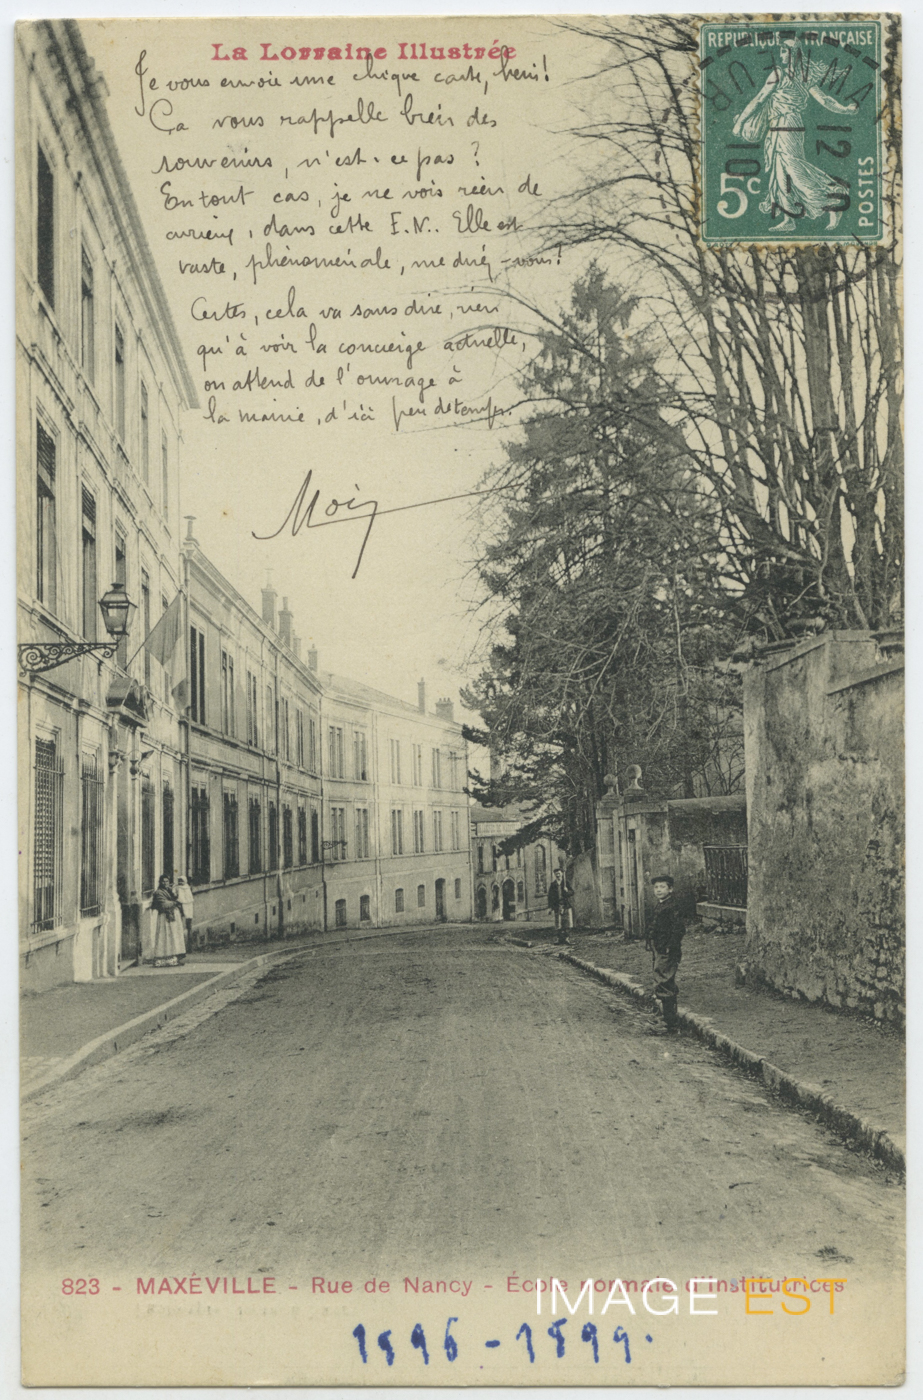 La Lorraine Illustrée
Je vous envoie une chique carte, hein!
Ça vous rappelle bien des
souvenirs, n'est-ce pas?
En tout cas, je ne vois rien de
curieux, dans cette E.N.. Elle est
vaste, phénoménale, me direz-vous!
Certes, cela va sans dire, rien
qu'à voir la concierge actuelle,
on attend de l'ouvrage à
la mairie, d'ici peu de temps.
Moi
REPUBLIQUE FRANÇAISE
5c
POSTES
12-10
1-2
10
823 - MAXÉVILLE - Rue de Nancy - École normale d'Institutrices
IMAGE EST
1896-1899.